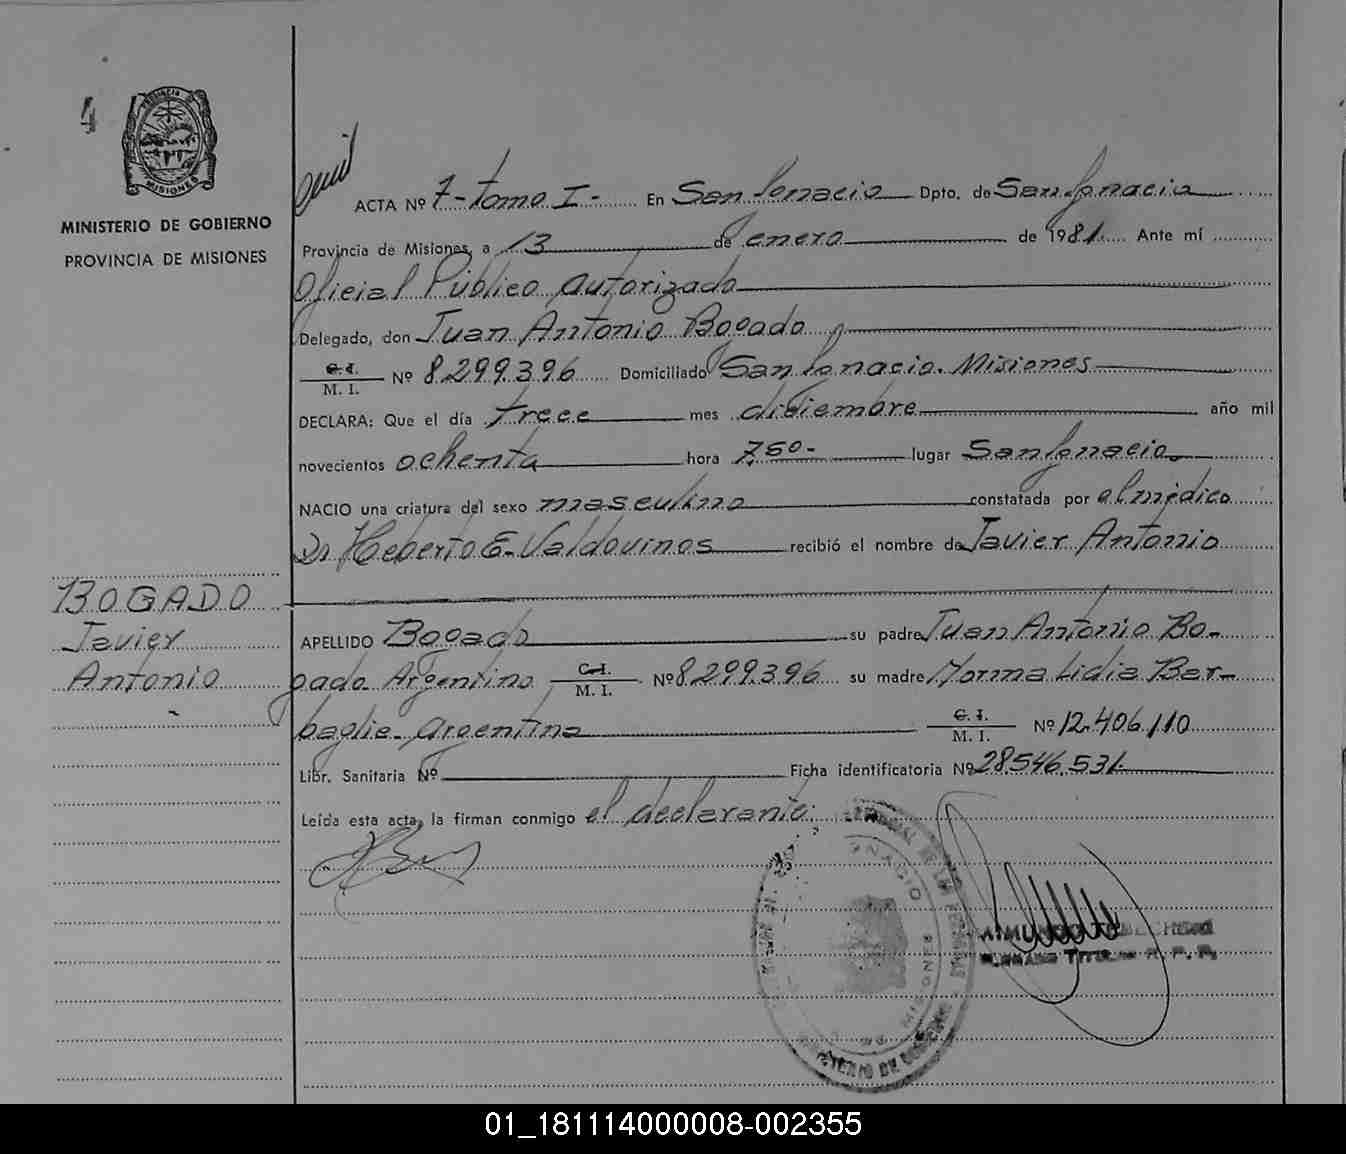 4
PROVINCIA DE
MISIONES
MINISTERIO DE GOBIERNO
PROVINCIA DE MISIONES
ACTA Nº 7-tomo I- En San Ignacio Dpto. de San Ignacio
Provincia de Misiones, a 13 de enero de 1981. Ante mí
Oficial Público Autorizado
Delegado, don Juan Antonio Bogado
C. I.
M. I. Nº 8.299.396 Domiciliado San Ignacio. Misiones
DECLARA: Que el día trece mes diciembre año mil
novecientos ochenta hora 7,50- lugar San Ignacio
NACIO una criatura del sexo masculino constatada por el médico
Dr Heberto E. Valdovinos recibió el nombre de Javier Antonio
BOGADO
Javier
Antonio
APELLIDO Bogado su padre Juan Antonio Bo-
gado Argentino C. I. M. I. Nº 8.299.396 su madre Norma Lidia Bar-
baglia- argentina C. I. M. I. Nº 12.406.110
Libr. Sanitaria Nº Ficha identificatoria Nº 28.546.531.
Leída esta acta, la firman conmigo el declarante.
IGNACIO
MISIONES
TITULAR R. P. P.
01_181114000008-002355